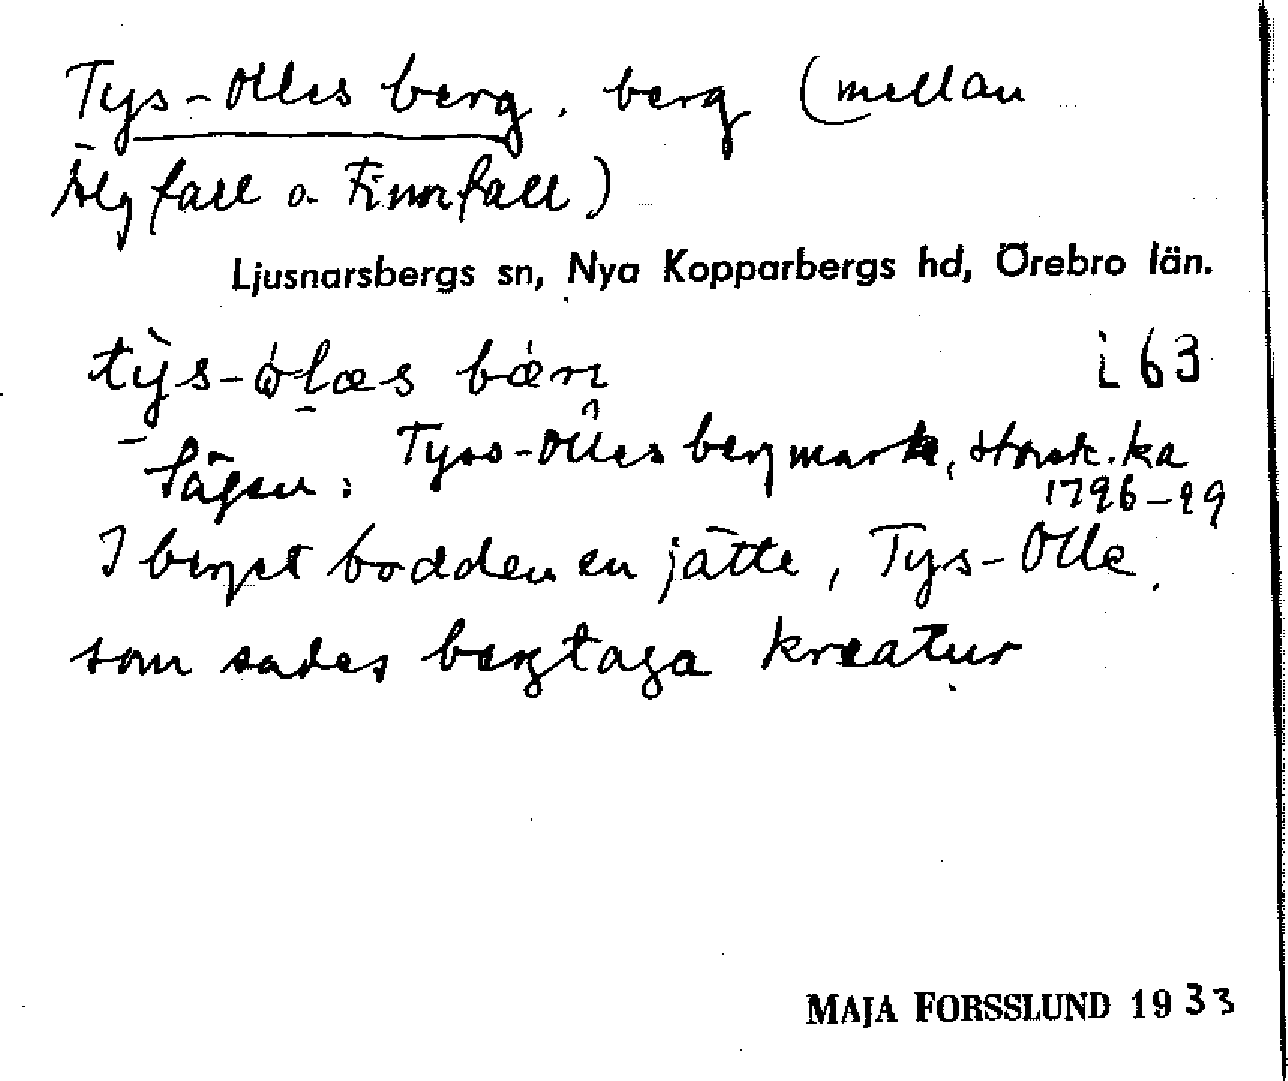 Tys-Olles berg. berg (mellan
Älgfall o. Finnfall)
Ljusnarsbergs sn, Nya Kopparbergs hd, Örebro län.
i 63
Sägen: Tyss-Olles berg mark, storsk.ka
1796-99
I berget bodde en jätte, Tys-Olle,
som sades bergtaga kreatur
MAJA FORSSLUND 1933